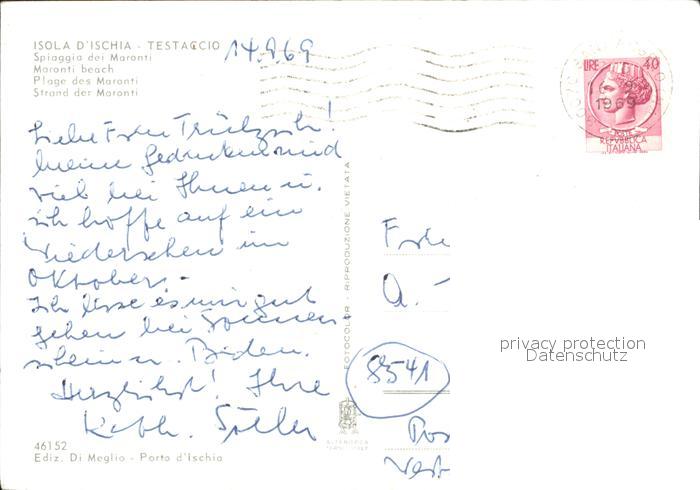 ISOLA D'ISCHIA - TESTACCIO
Spiaggia dei Maronti
Maronti beach
Plage des Maronti
Strand der Maronti
14.9.69
LIRE 40
1969
REPVBBLICA
ITALIANA
Liebe Frau
meine Gedanken sind
viel bei Ihnen u.
ich hoffe auf ein
Wiedersehen im
Oktober. -
Ich lasse es mir gut
gehen bei Sonnen-
schein u. Baden.
Herzlichst! Ihre
Kath.
FOTOCOLOR - RIPRODUZIONE VIETATA
Frau
A. -
8541
Pos
privacy protection
Datenschutz
46152
Ediz. Di Meglio - Porto d'Ischia